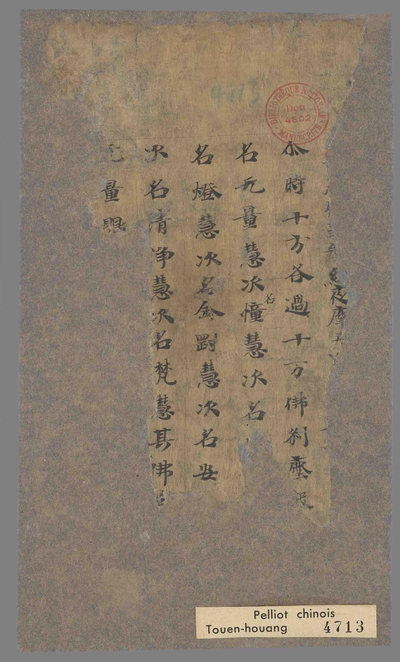 尒時十方各過十方佛刹塵
名无量慧次名幢慧次名
名燈慧次名金剛慧次名安
次名清净慧次名梵慧其佛
无量眼
4713
DON
4502
MANUSCRITS
Pelliot chinois
Touen-houang 4713